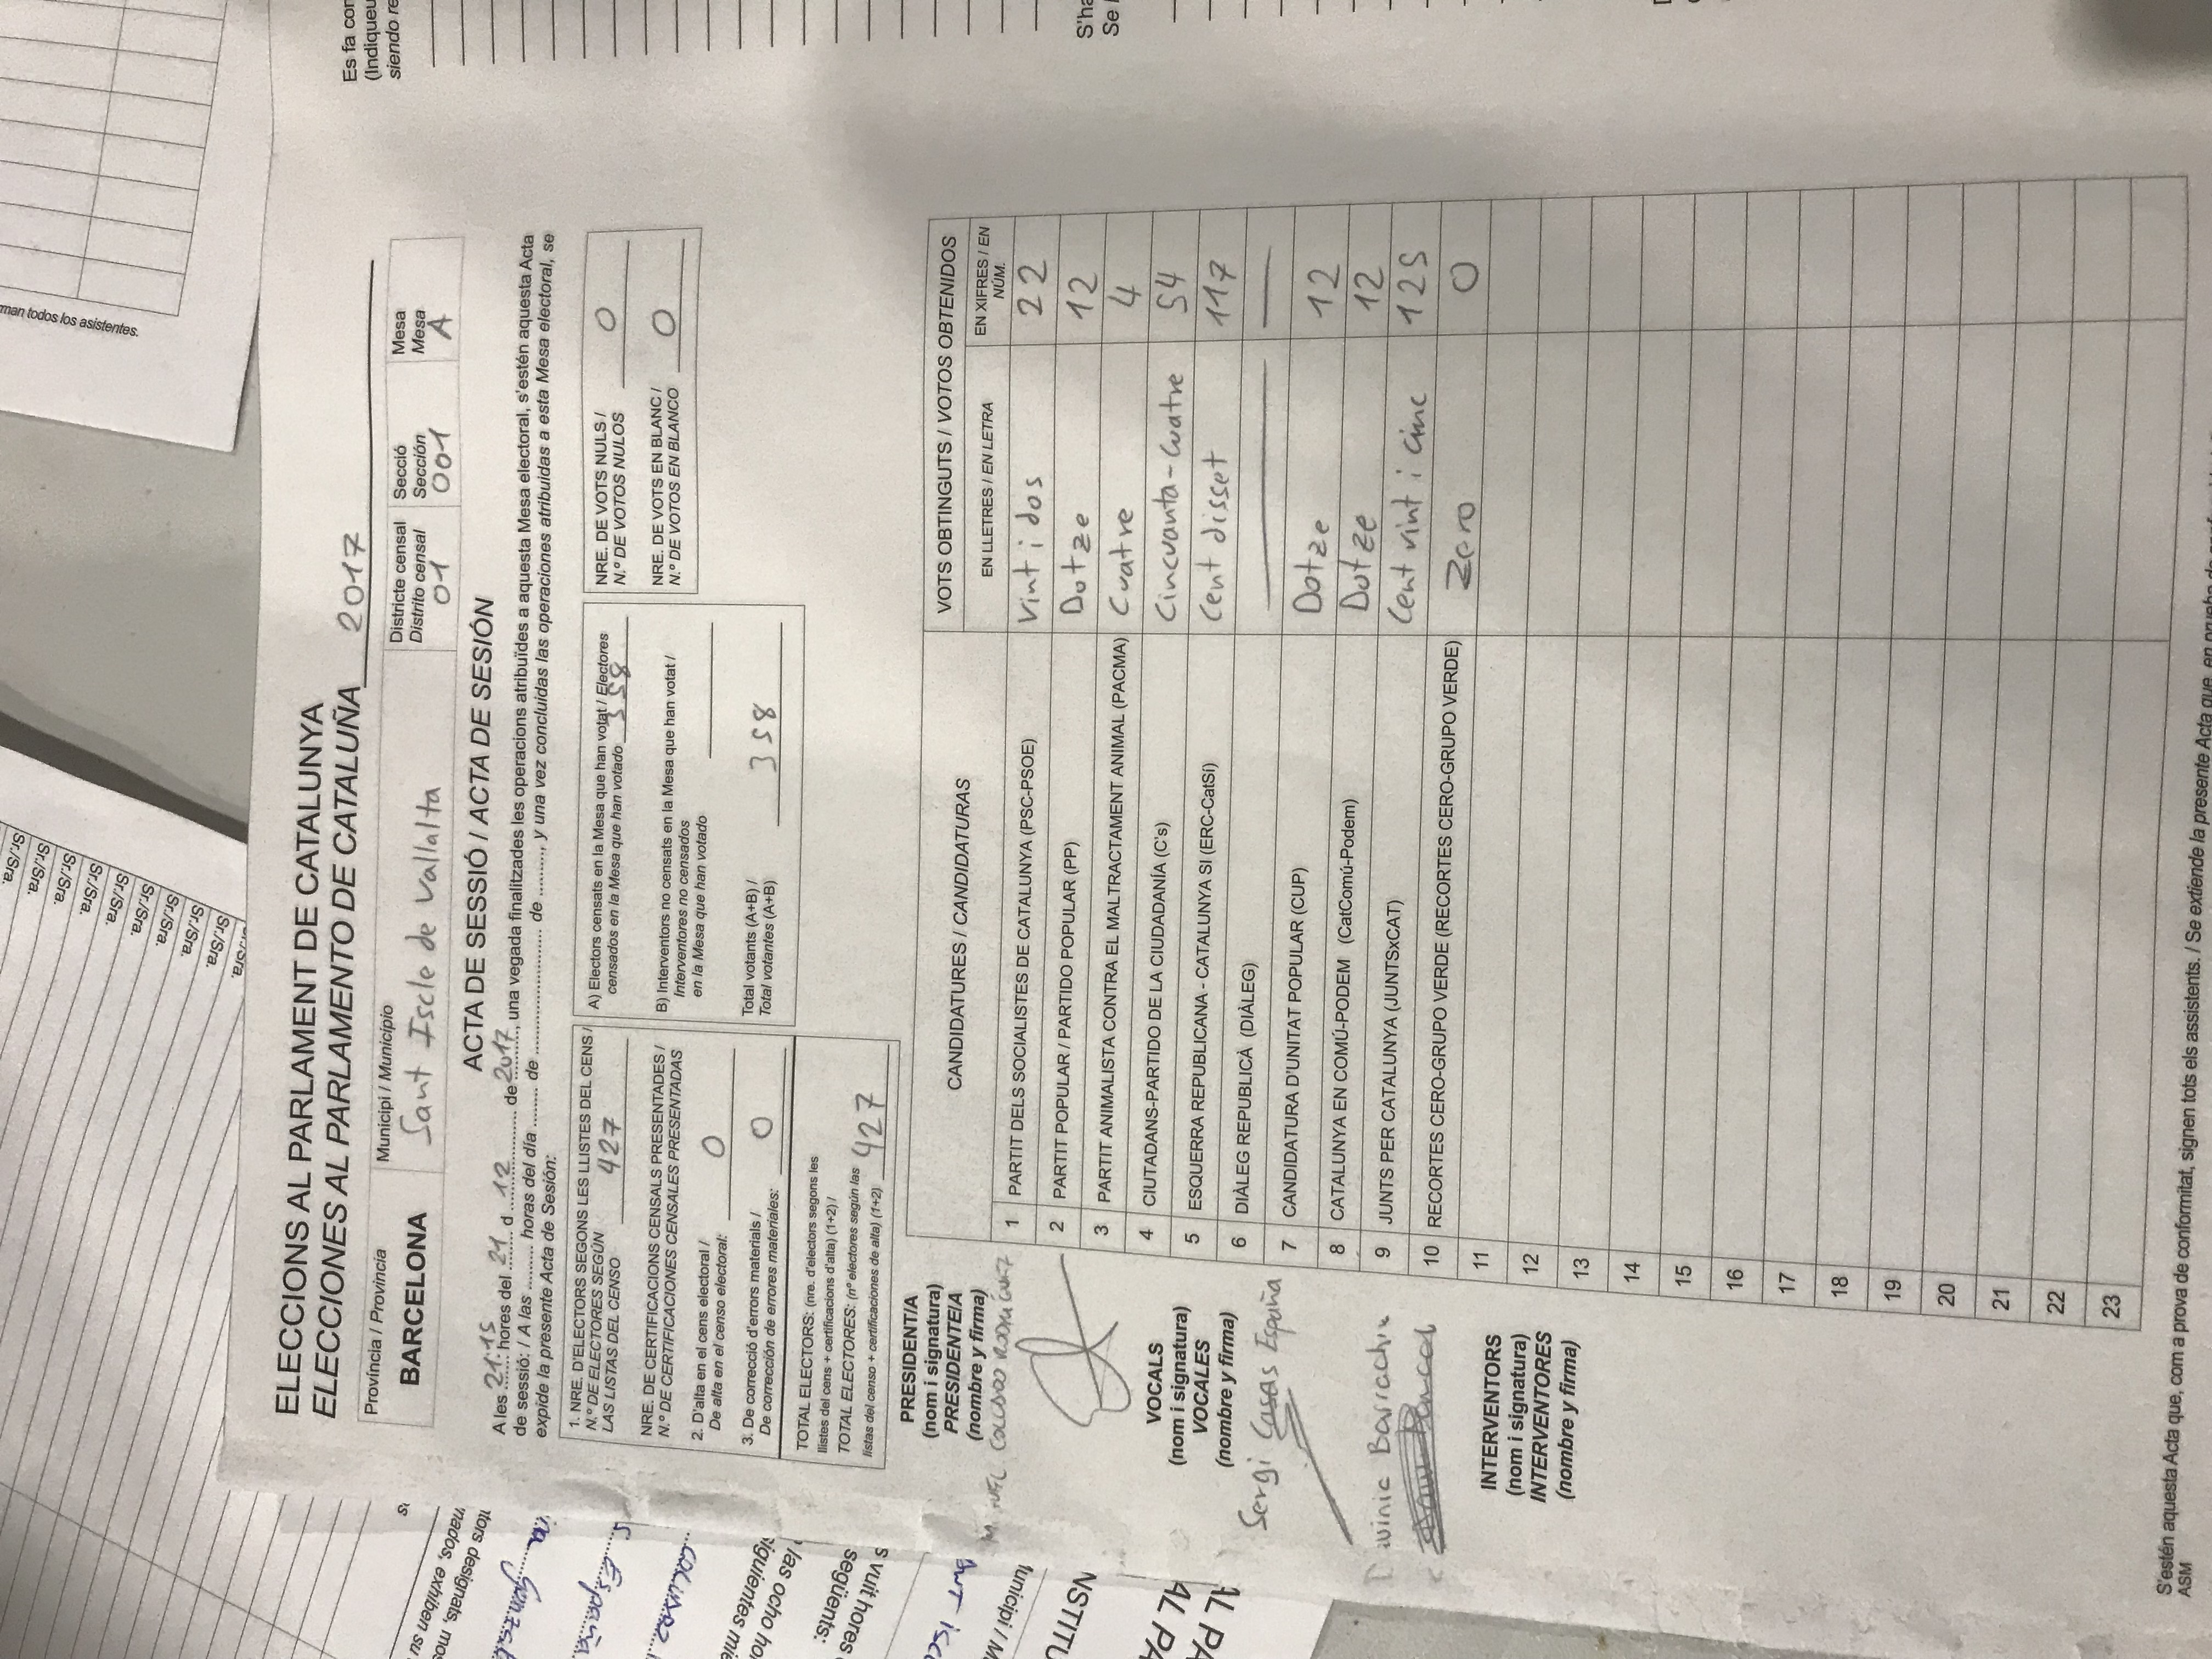 Sr./Sra.
Sr./Sra.
Sr./Sra.
Sr./Sra.
Sr./Sra.
Sr./Sra.
Sr./Sra.
Sr./Sra.
Sr./Sra.
man todos los asistentes.
ELECCIONS AL PARLAMENT DE CATALUNYA
ELECCIONES AL PARLAMENTO DE CATALUÑA 2017
Província / Provincia
BARCELONA
Municipi / Municipio
Sant Iscle de Vallalta
Districte censal
Distrito censal
01
Secció
Sección
001
Mesa
Mesa
A
ACTA DE SESSIÓ / ACTA DE SESIÓN
A les 21:15 hores del 21 d 12 de 2017, una vegada finalitzades les operacions atribuïdes a aquesta Mesa electoral, s'estén aquesta Acta
de sessió: / A las ......... horas del día ........ de .......................... de ........., y una vez concluidas las operaciones atribuidas a esta Mesa electoral, se
expide la presente Acta de Sesión:
1. NRE. D'ELECTORS SEGONS LES LLISTES DEL CENS /
N.º DE ELECTORES SEGÚN
LAS LISTAS DEL CENSO 427
NRE. DE CERTIFICACIONS CENSALS PRESENTADES /
N.º DE CERTIFICACIONES CENSALES PRESENTADAS
2. D'alta en el cens electoral /
De alta en el censo electoral: 0
3. De correcció d'errors materials /
De corrección de errores materiales: 0
TOTAL ELECTORS: (nre. d'electors segons les
llistes del cens + certificacions d'alta) (1+2) /
TOTAL ELECTORES: (nº electores según las
listas del censo + certificaciones de alta) (1+2) 427
A) Electors censats en la Mesa que han votat / Electores
censados en la Mesa que han votado 358
B) Interventors no censats en la Mesa que han votat /
Interventores no censados
en la Mesa que han votado
Total votants (A+B) /
Total votantes (A+B) 358
NRE. DE VOTS NULS /
N.º DE VOTOS NULOS 0
NRE. DE VOTS EN BLANC /
N.º DE VOTOS EN BLANCO 0
PRESIDENT/A
(nom i signatura)
PRESIDENTE/A
(nombre y firma)
COLLADO RODRÍGUEZ
VOCALS
(nom i signatura)
VOCALES
(nombre y firma)
Sergi Casas España
INTERVENTORS
(nom i signatura)
INTERVENTORES
(nombre y firma)
CANDIDATURES / CANDIDATURAS
VOTS OBTINGUTS / VOTOS OBTENIDOS
EN LLETRES / EN LETRA
EN XIFRES / EN NÚM.
1 PARTIT DELS SOCIALISTES DE CATALUNYA (PSC-PSOE) Vint i dos 22
2 PARTIT POPULAR / PARTIDO POPULAR (PP) Dotze 12
3 PARTIT ANIMALISTA CONTRA EL MALTRACTAMENT ANIMAL (PACMA) Cuatre 4
4 CIUTADANS-PARTIDO DE LA CIUDADANÍA (C's) Cincuanta-cuatre 54
5 ESQUERRA REPUBLICANA - CATALUNYA SI (ERC-CatSí) Cent disset 117
6 DIÀLEG REPUBLICÀ (DIÀLEG)
7 CANDIDATURA D'UNITAT POPULAR (CUP) Dotze 12
8 CATALUNYA EN COMÚ-PODEM (CatComú-Podem) Dotze 12
9 JUNTS PER CATALUNYA (JUNTSxCAT) Cent vint i cinc 125
10 RECORTES CERO-GRUPO VERDE (RECORTES CERO-GRUPO VERDE) Zero 0
11
12
13
14
15
16
17
18
19
20
21
22
23
S'estén aquesta Acta que, com a prova de conformitat, signen tots els assistents. / Se extiende la presente Acta que, en prueba de
ASM
Es fa
(Indiqueu
siendo
S'ha
Se